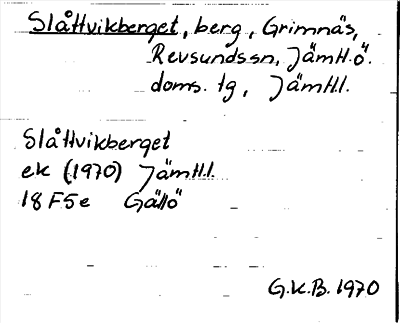 Slåttvikberget, berg, Grimnäs,
Revsundssn, Jämtl.ö.
doms. tg, Jämtl.l.
Slåttvikberget
ek (1970) Jämtl.l.
18 F5e Gällö
G.K.B. 1970